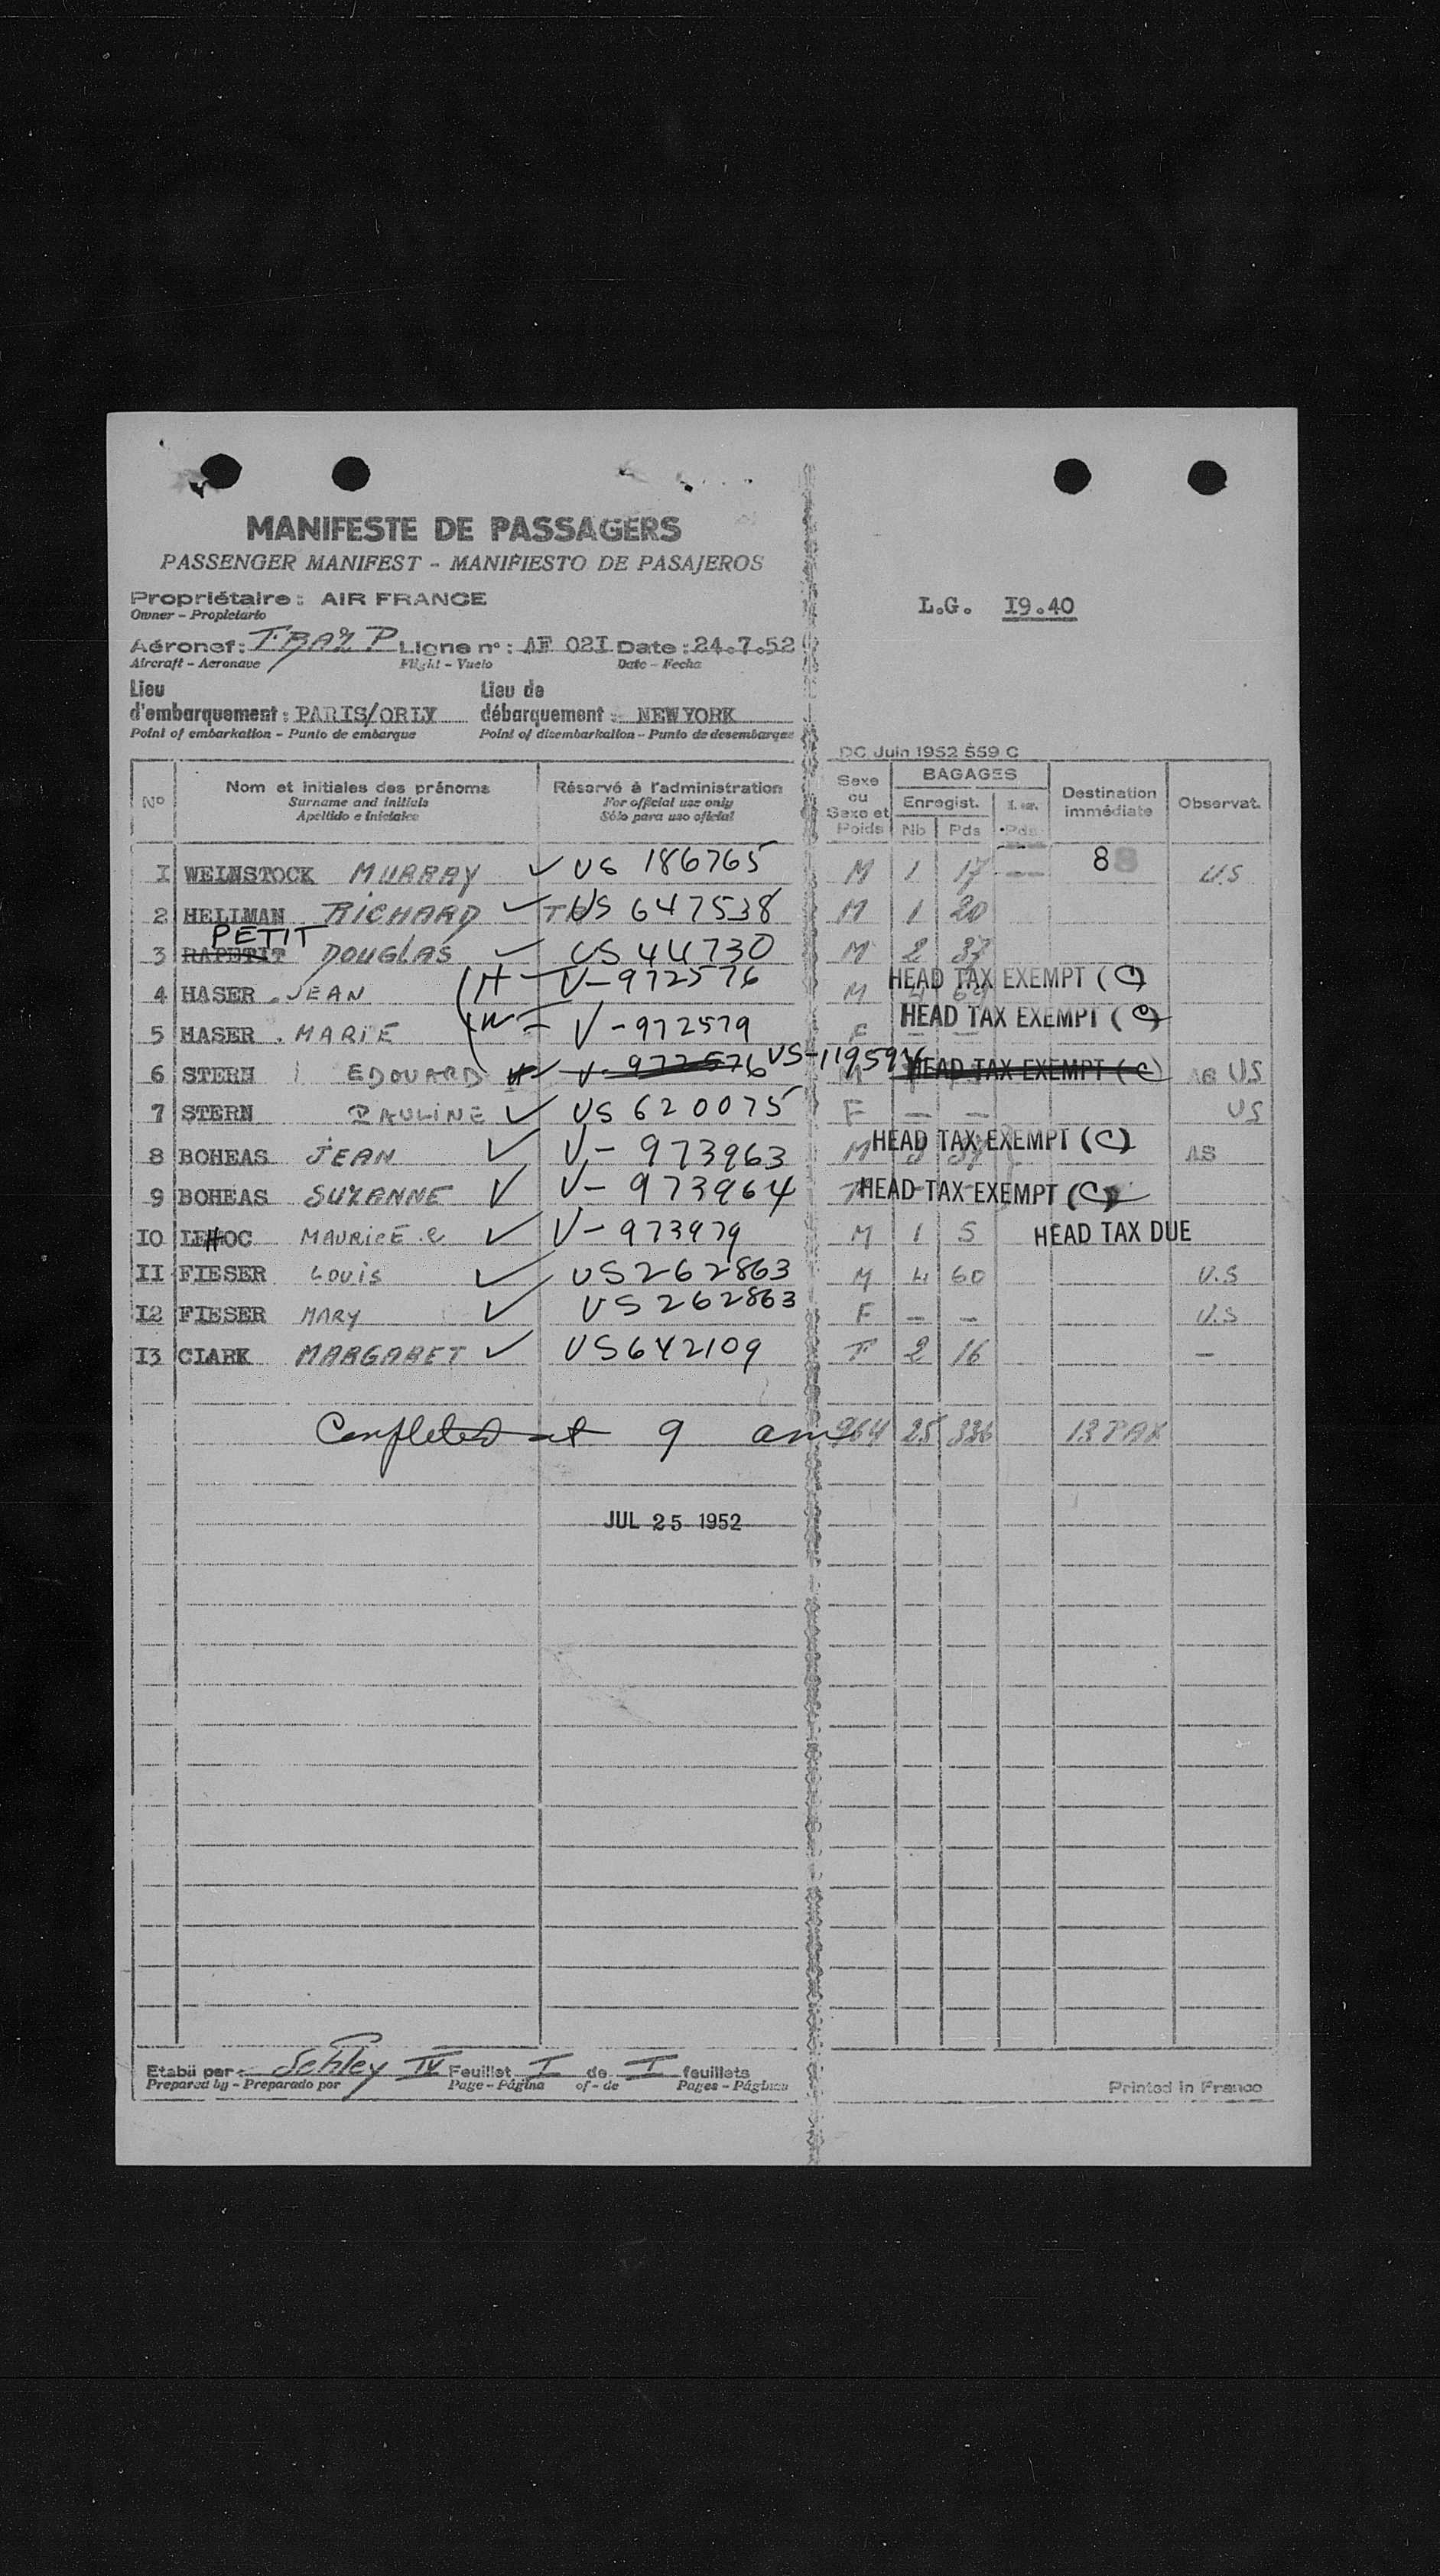 MANIFESTE DE PASSAGERS
PASSENGER MANIFEST - MANIFIESTO DE PASAJEROS
Propriétaire : AIR FRANCE
Owner - Propietario
L.G. I9.40
Aéronef : Ligne n° : AF 02I Date : 24.7.52
Aircraft - Aeronave Flight - Vuelo Date - Fecha
Lieu d'embarquement : PARIS/ORLY Lieu de débarquement : NEW YORK
Point of embarkation - Punto de embarque Point of disembarkation - Punto de desembarque
DC Juin 1952 559 C
N° Nom et initiales des prénoms Réservé à l'administration Sexe ou Sexe et Poids BAGAGES Destination immédiate Observat.
Surname and initials For official use only Enregist. Pds
Apellido e iniciales Sólo para uso oficial Nb Pds
I WEINSTOCK MURRAY ✓ US 186765 M 1 17 — 88 U.S
2 HELLMAN RICHARD ✓ US 647538 M 1 20
PETIT
3 RAPETIT DOUGLAS ✓ US 44730 M 2 37
4 HASER JEAN H V-972576 M HEAD TAX EXEMPT (C)
5 HASER MARIE W V-972579 F HEAD TAX EXEMPT (C)
6 STERN EDOUARD V-972576 US-119594 M HEAD TAX EXEMPT (C) US
7 STERN PAULINE ✓ US 620075 F — — US
8 BOHEAS JEAN ✓ V- 973963 M HEAD TAX EXEMPT (C) AS
9 BOHEAS SUZANNE ✓ V- 973964 F HEAD TAX EXEMPT (C)
IO LEHOC MAURICE ✓ V-973979 M 1 5 HEAD TAX DUE
II FIESER LOUIS ✓ US 262863 M 4 60 U.S
I2 FIESER MARY ✓ US 262863 F — — U.S
I3 CLARK MARGARET ✓ US642109 F 2 16 —
Completed at 9 am 964 25 336 13 PAX
JUL 25 1952
Etabli par : Schley IV Feuillet I de I feuillets
Prepared by - Preparado por Page - Página of - de Pages - Páginas
Printed in France